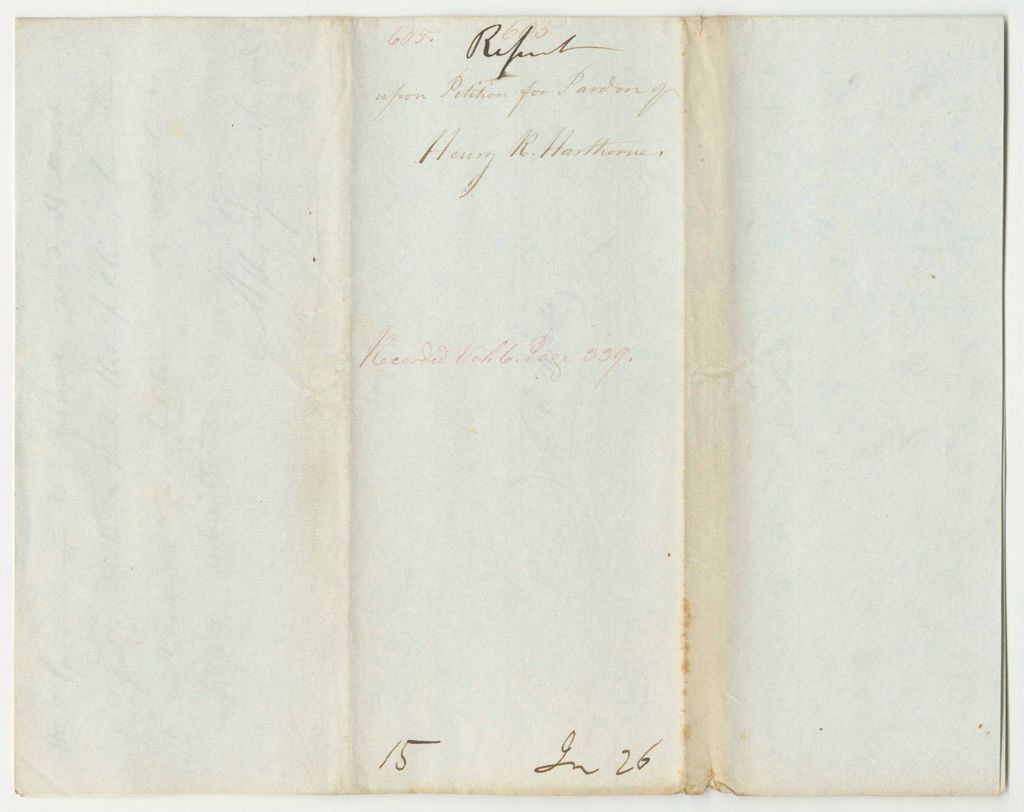 605. 605
Report
upon Petition for Pardon of
Henry R. Harthorne.
Recorded Vol. 6. Page 339.
15 Jn 26